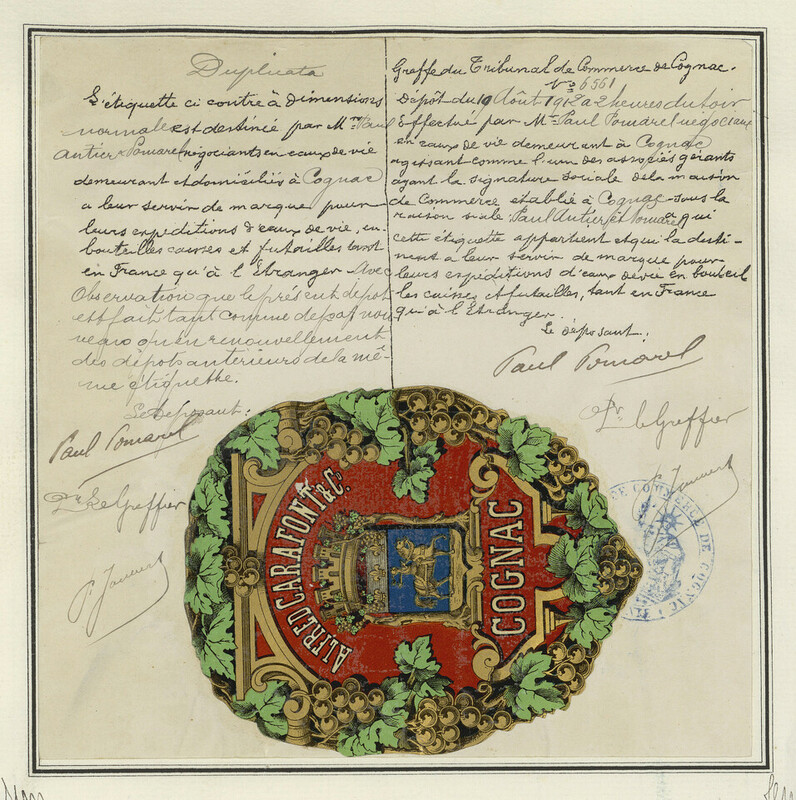 Duplicata
L'étiquette ci contre à dimensions
normale est destinée par Mrs Paul
Antier & Pomarel négociants en eaux de vie
demeurant et domiciliés à Cognac
a leur servir de marque pour
leurs expéditions d'eaux de vie, en
bouteilles caisses et futailles tant
en France qu'à l'Etranger - Avec
Observation que le présent dépot
est fait tant comme dépot nou
veau qu'en renouvellement
des dépots antérieurs de la mê-
me étiquette.
Le Déposant:
Paul Pomarel
Pr Le Greffier
P. Jouvert
Greffe du Tribunal de Commerce de Cognac.
No 6561
Dépôt du 19 Août 1912 a 2 heures du soir
Effectué par Mr Paul Pomarel négociant
en eaux de vie demeurant à Cognac
agissant comme l'un des associés gérants
ayant la signature sociale de la maison
de Commerce établie à Cognac sous la
raison sociale Paul Antier et Pomarel à qui
cette étiquette appartient et qui la desti-
nent a leur servir de marque pour
leurs expéditions d'eaux de vie en bouteil
les caisses et futailles, tant en France
qu'à l'Etranger.
Le déposant:
Paul Pomarel
Pr le Greffier
P. Jouvert
ALFRED CARAFONT & Co.
COGNAC
DE COMMERCE DE COGNAC